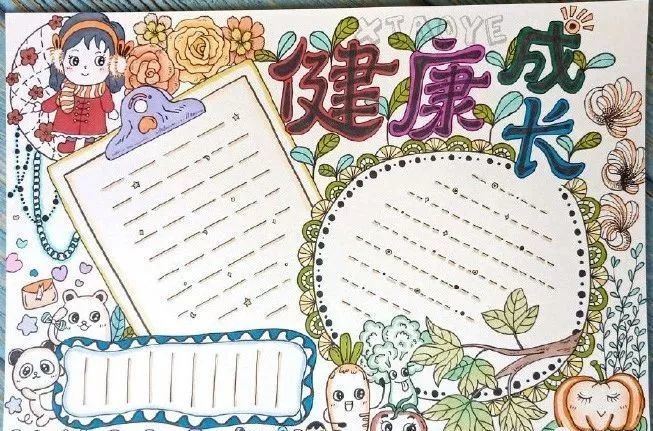 XIAOYE
健康
成
长